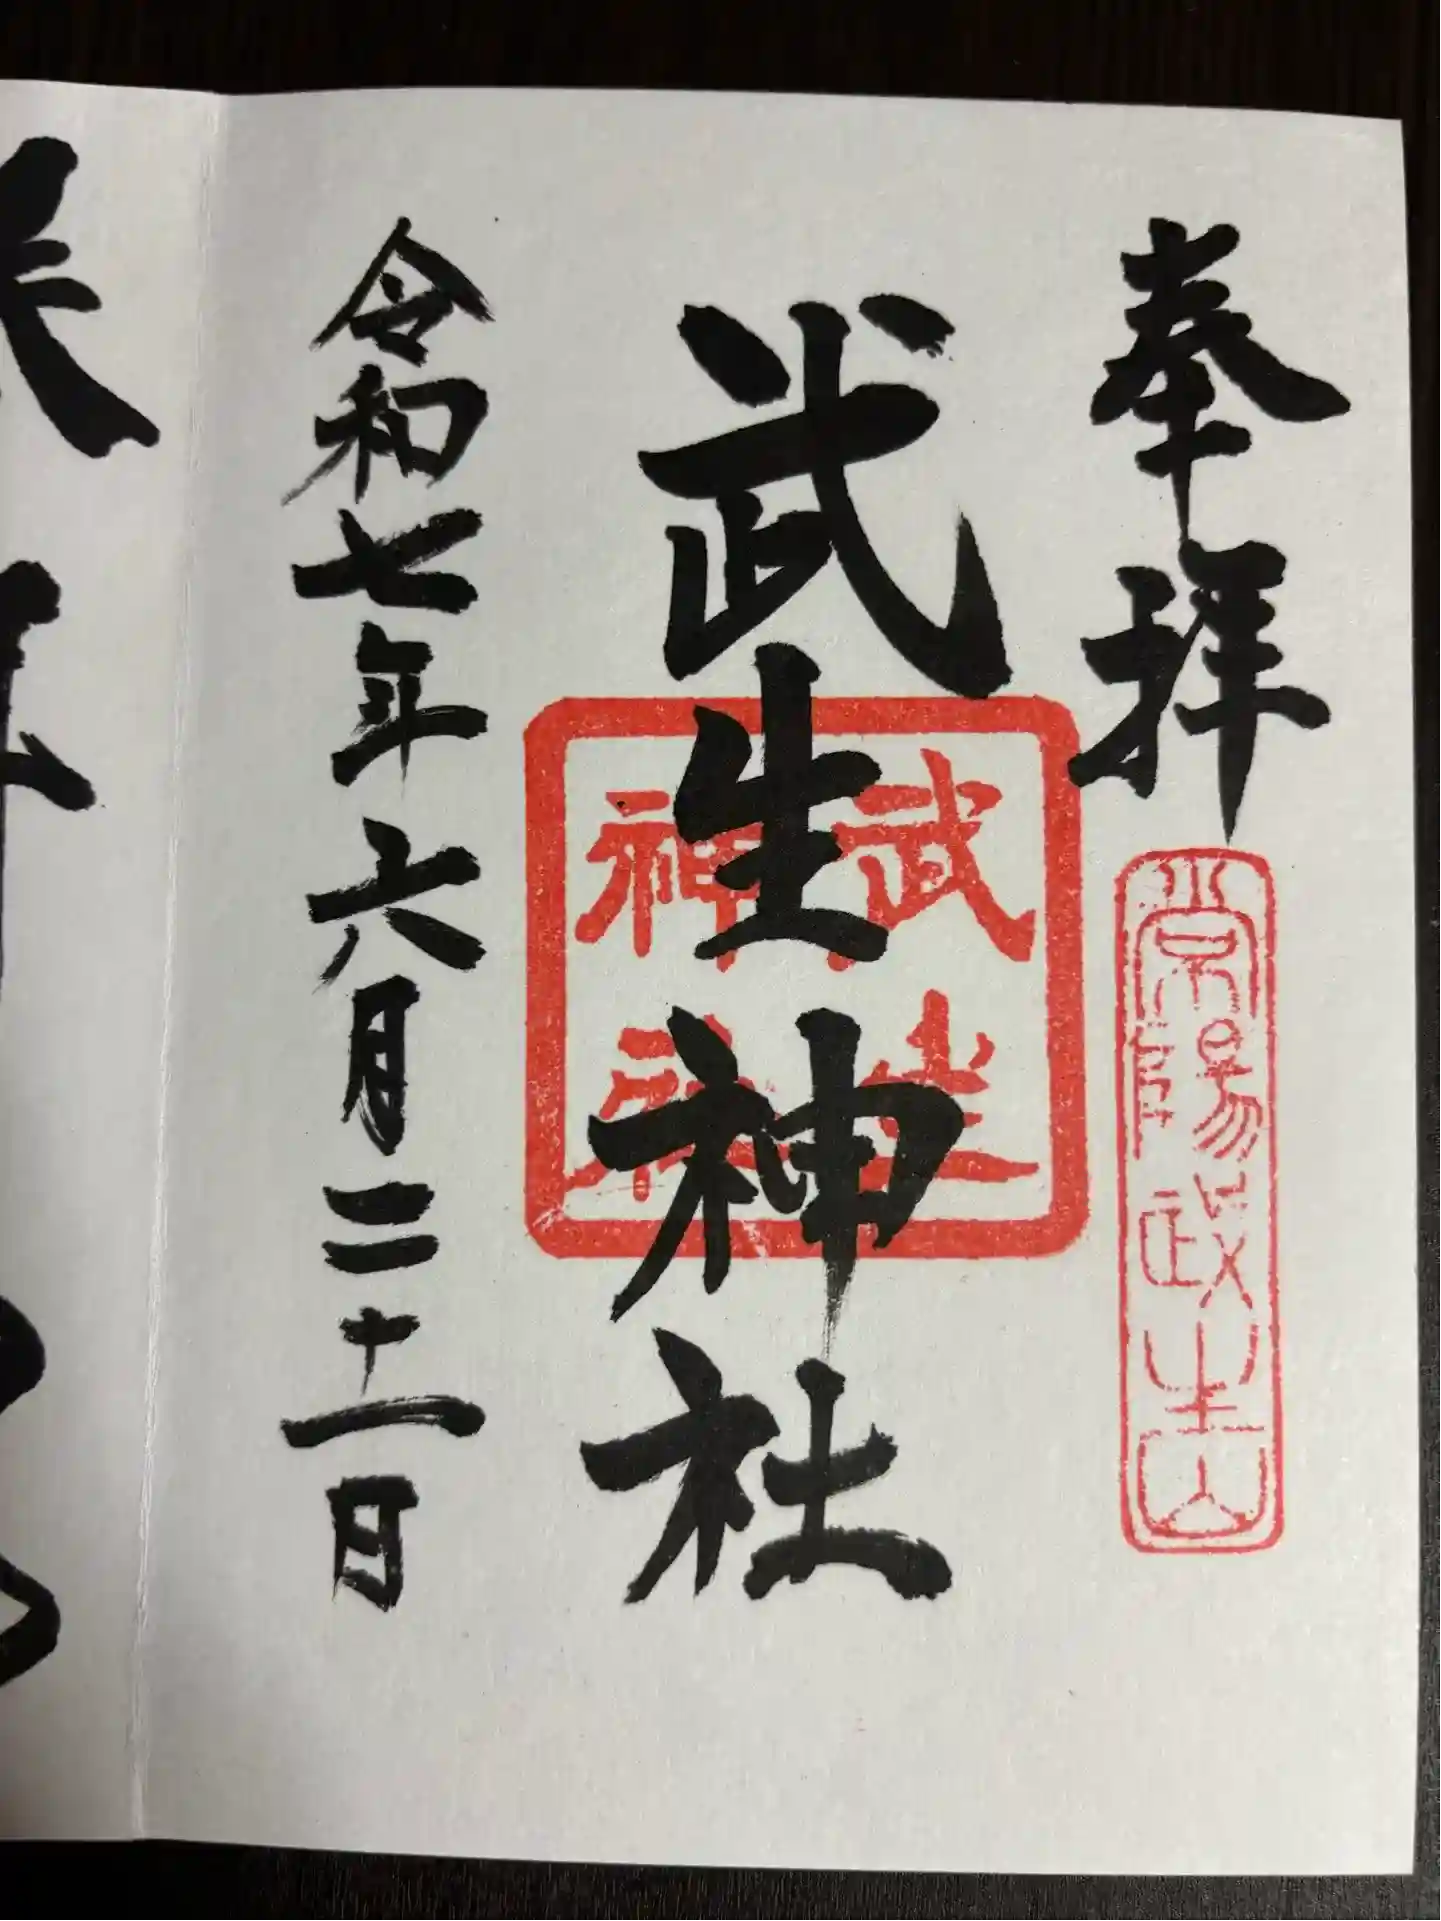 奉拝
武生神社
武生
神社
令和七年六月二十一日